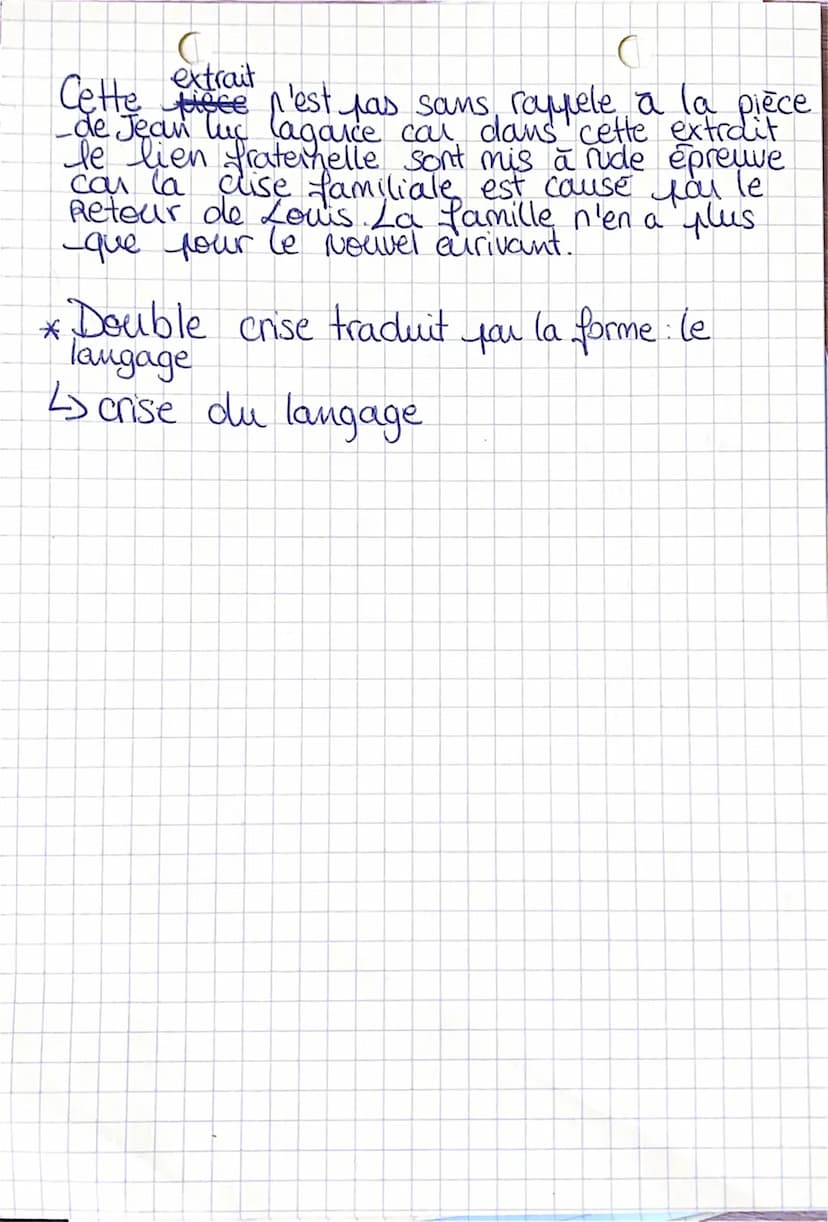 extrait
Cette pièce n'est pas sans rappele à la pièce
de Jean luc lagarce car dans cette extrait
le lien fraternelle sont mis à rude épreuve
car la crise familiale est causé par le
Retour de Louis. La famille n'en a plus
que pour le nouvel arrivant.
* Double crise traduit par la forme : le
langage
↳ crise du langage